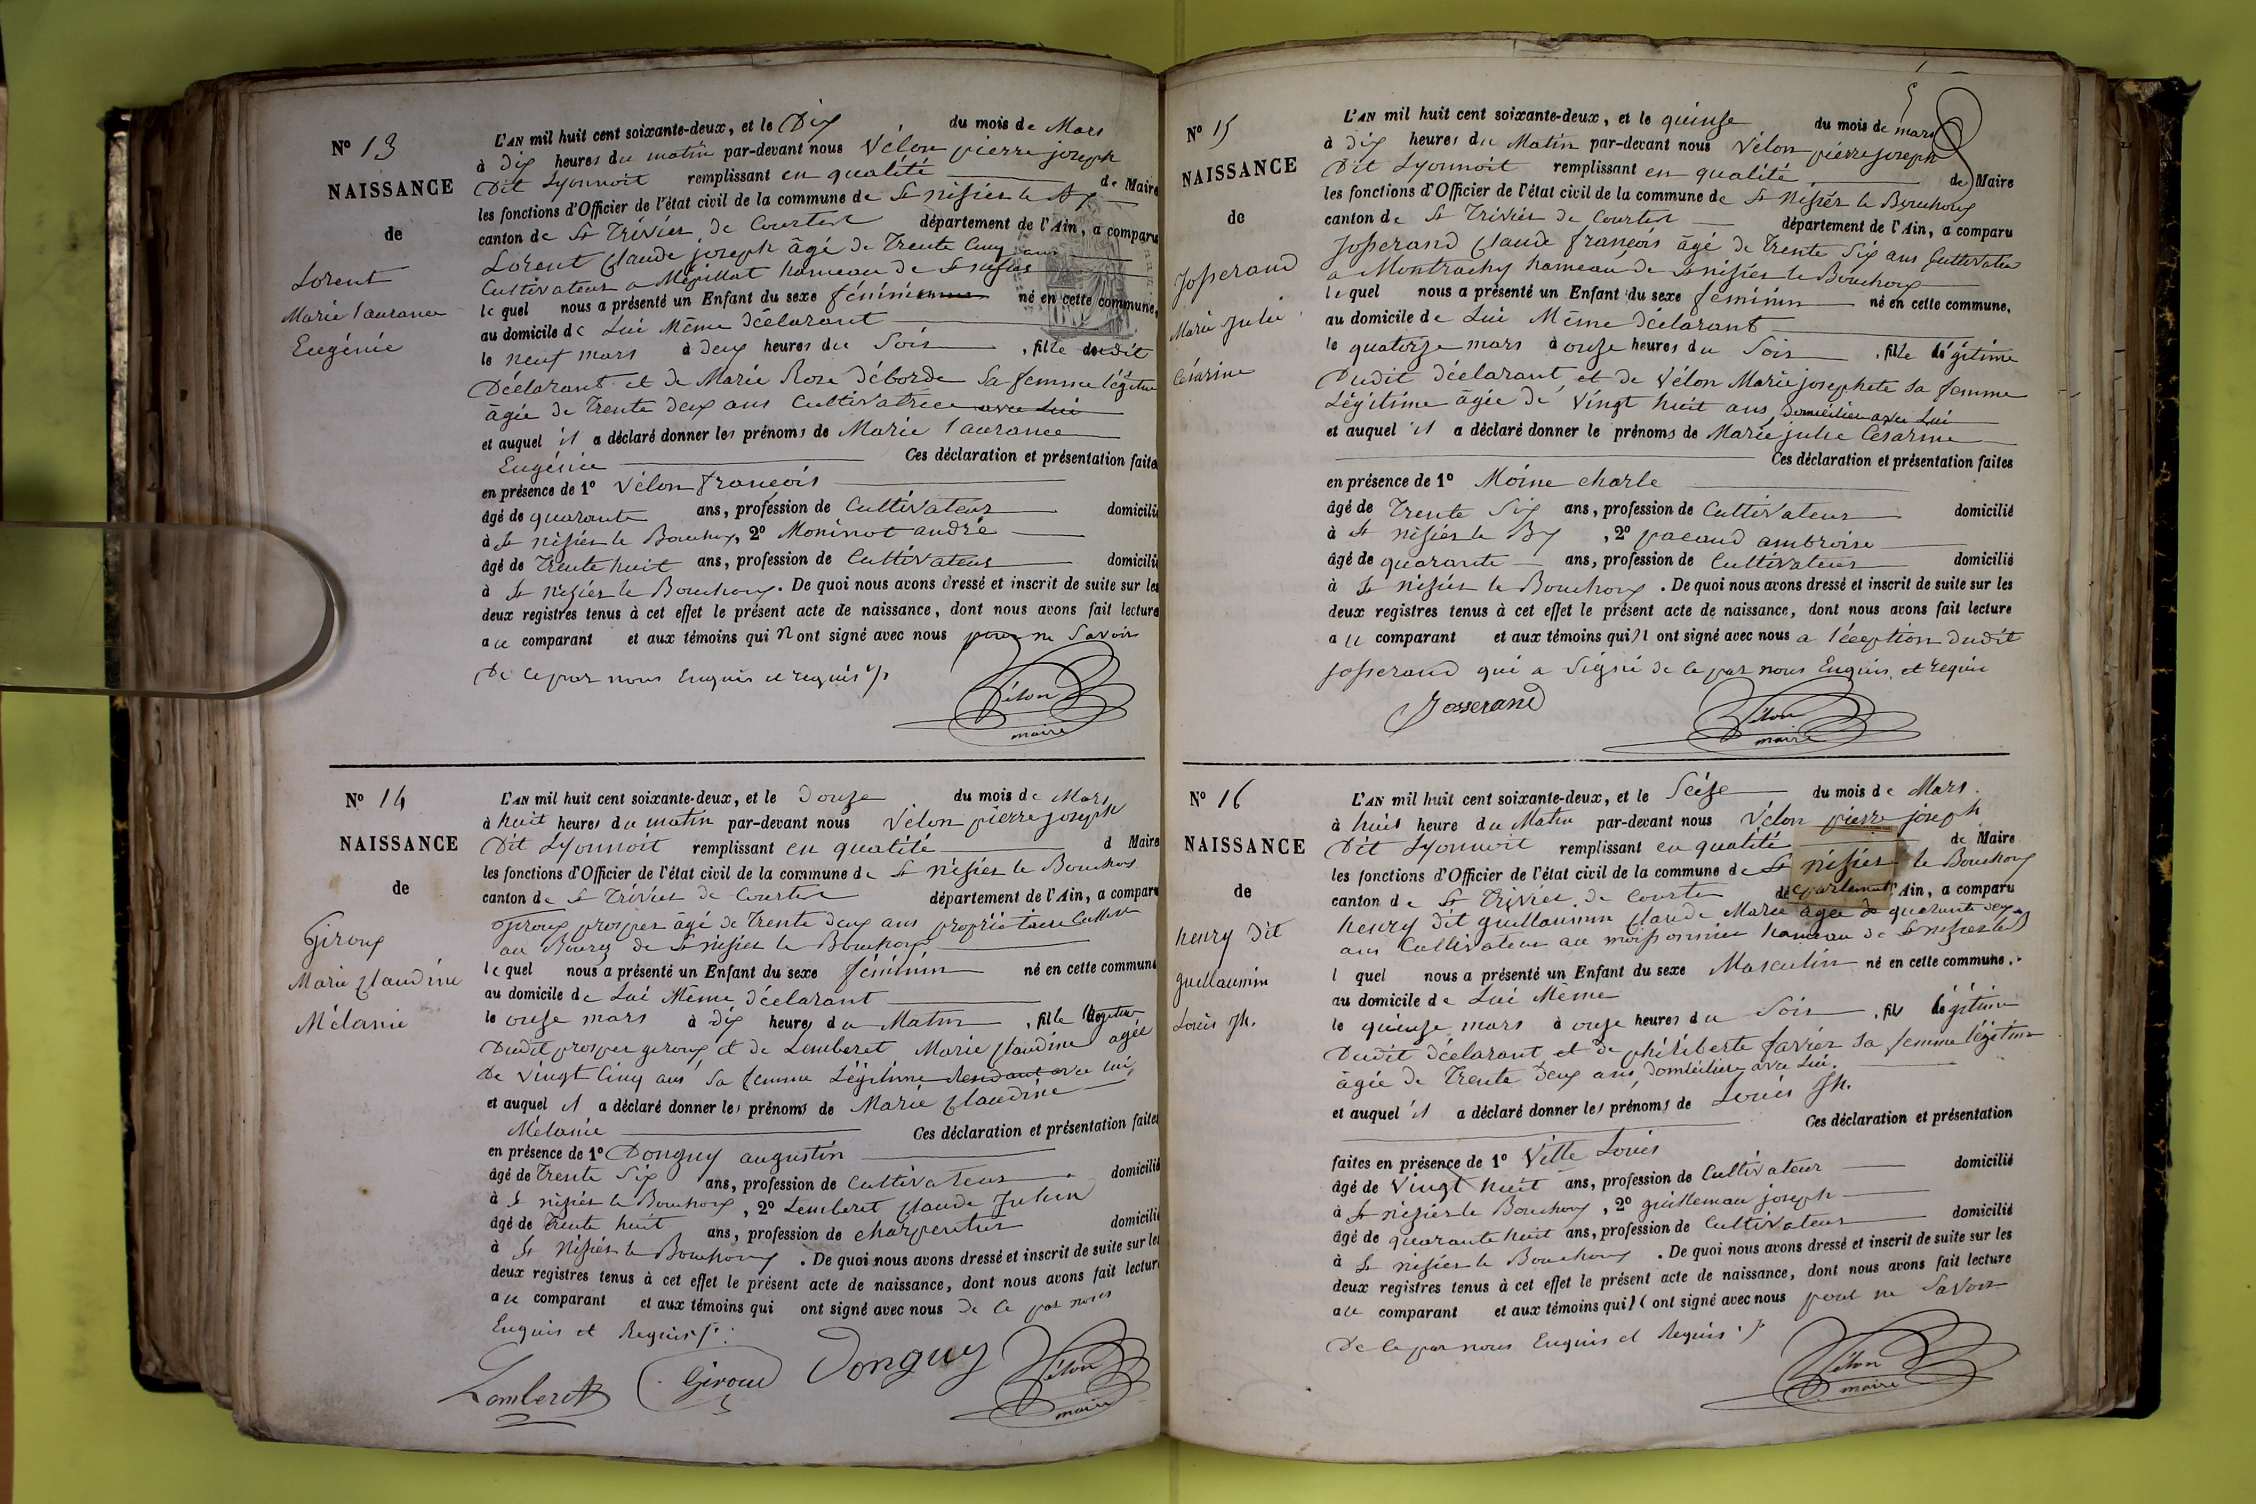 N° 13
NAISSANCE
de
Lorent
Marie laurance
Eugénie
L'AN mil huit cent soixante-deux, et le Dix du mois de Mars
à dix heures du matin par-devant nous Vélon pierre joseph
Dit Lyonnoit remplissant en qualité de Maire
les fonctions d'Officier de l'état civil de la commune de St nisier le
canton de St Trivier de Courtes département de l'Ain, a comparu
Lorent Claude joseph âgé de Trente Cinq ans
Cultivateur a Mépillat hameau de St nisier
lequel nous a présenté un Enfant du sexe féminin né en cette commune,
au domicile de Lui Même déclarant
le neuf mars à deux heures du Soir , fille dudit
Déclarant et de Marie Rose déborde Sa femme légitime
âgée de Trente deux ans Cultivatrice avec Lui
et auquel il a déclaré donner les prénoms de Marie laurance
Eugénie Ces déclaration et présentation faites
en présence de 1° Vélon françois
âgé de quarante ans, profession de Cultivateur domicilié
à St nisier le Bouchoux, 2° Moninot andré
âgé de Trente huit ans, profession de Cultivateur domicilié
à St nisier le Bouchoux. De quoi nous avons dressé et inscrit de suite sur les
deux registres tenus à cet effet le présent acte de naissance, dont nous avons fait lecture
au comparant et aux témoins qui n ont signé avec nous pour ne Savoir
De ce par nous Enquis et requis
Vélon
maire
N° 14
NAISSANCE
de
Giroux
Marie Claudine
Mélanie
L'AN mil huit cent soixante-deux, et le douze du mois de Mars
à huit heures du matin par-devant nous Vélon pierre joseph
Dit Lyonnoit remplissant en qualité d Maire
les fonctions d'Officier de l'état civil de la commune de St nisier le Bouchoux
canton de St Trivier de Courtes département de l'Ain, a comparu
Giroux prosper âgé de Trente deux ans propriétaire
au Bourg de St nisier le Bouchoux
lequel nous a présenté un Enfant du sexe féminin né en cette commune
au domicile de Lui Même déclarant
le onze mars à dix heures du Matin , fille légitime
Dudit prosper giroux et de Lemberet Marie Claudine agée
De vingt Cinq ans Sa femme Légitime avec lui,
et auquel il a déclaré donner les prénoms de Marie Claudine
Mélanie Ces déclaration et présentation faites
en présence de 1° Donguy augustin
âgé de Trente Six ans, profession de Cultivateur domicilié
à St nisier le Bouchoux, 2° Lemberet Claude Julien
âgé de Trente huit ans, profession de charpentier domicilié
à St Nisier le Bouchoux. De quoi nous avons dressé et inscrit de suite sur les
deux registres tenus à cet effet le présent acte de naissance, dont nous avons fait lecture
au comparant et aux témoins qui ont signé avec nous de ce par nous
Enquis et Requis
Lemberet Giroud Donguy Vélon
maire
N° 15
NAISSANCE
de
Josserand
Marie Julie
Césarine
L'AN mil huit cent soixante-deux, et le quinze du mois de mars
à dix heures du Matin par-devant nous Vélon pierre joseph
Dit Lyonnoit remplissant en qualité de Maire
les fonctions d'Officier de l'état civil de la commune de St Nisier le Bouchoux
canton de St Trivier de Courtes département de l'Ain, a comparu
Josserand Claude françois âgé de Trente Six ans Cultivateur
a Montrachy hameau de St nisier le Bouchoux
lequel nous a présenté un Enfant du sexe féminin né en cette commune,
au domicile de Lui Même déclarant
le quatorze mars à onze heures du Soir , fille légitime
Dudit déclarant et de Vélon Marie josephete Sa femme
Légitime âgée de Vingt huit ans, domiciliée avec Lui
et auquel il a déclaré donner le prénoms de Marie julie Césarine
Ces déclaration et présentation faites
en présence de 1° Moine charle
âgé de Trente Six ans, profession de Cultivateur domicilié
à St nisier le Bx , 2° pacaud ambroise
âgé de quarante ans, profession de Cultivateur domicilié
à St Nisier le Bouchoux. De quoi nous avons dressé et inscrit de suite sur les
deux registres tenus à cet effet le présent acte de naissance, dont nous avons fait lecture
au comparant et aux témoins qui n ont signé avec nous a l'éception dudit
Josserand qui a Signé de ce par nous Enquis et requis
Josserand Vélon
maire
N° 16
NAISSANCE
de
henry dit
guillaumin
Louis Jh.
L'AN mil huit cent soixante-deux, et le Seize du mois de Mars.
à huit heure du Matin par-devant nous Vélon pierre joseph
Dit Lyonnoit remplissant en qualité de Maire
les fonctions d'Officier de l'état civil de la commune de St nisier le Bouchoux
canton de St Trivier de Courtes département l'Ain, a comparu
henry dit guillaumin Claude Marie âgée de quarante deux
ans Cultivateur au moissonnier hameau de St nisier le B
l quel nous a présenté un Enfant du sexe Masculin né en cette commune.
au domicile de Lui Même
le quinze mars à onze heures du Soir , fils légitime
Dudit déclarant et de philiberte favier Sa femme légitime
âgée de Trente deux ans, domiciliée avec Lui.
et auquel il a déclaré donner les prénoms de Louis Jh.
Ces déclaration et présentation
faites en présence de 1° Ville Louis
âgé de Vingt huit ans, profession de Cultivateur domicilié
à St nisier le Bouchoux, 2° guilleman joseph
âgé de quarante huit ans, profession de Cultivateur domicilié
à St nisier le Bouchoux. De quoi nous avons dressé et inscrit de suite sur les
deux registres tenus à cet effet le présent acte de naissance, dont nous avons fait lecture
au comparant et aux témoins qui n ont signé avec nous pour ne Savoir
De ce par nous Enquis et Requis
Vélon
maire